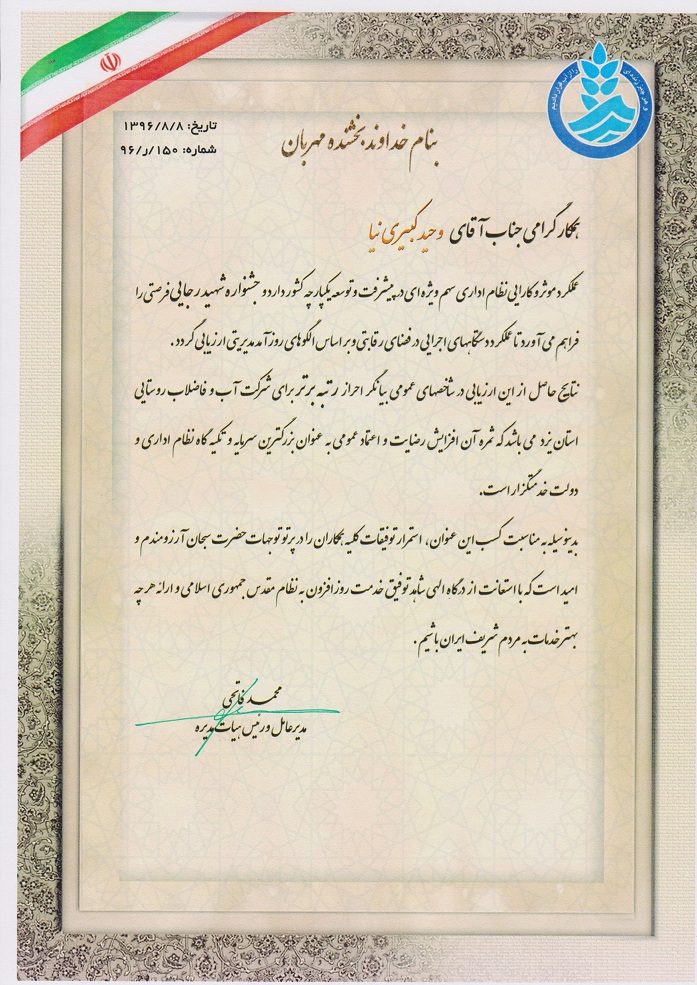 و هر چیز زنده ای را از آب قرار دادیم
تاریخ: ۱۳۹۶/۸/۸
شماره: ۱۵۰/ر/۹۶
بنام خداوند بخشنده مهربان
همکار گرامی جناب آقای وحید کبیری نیا
عملکرد موثر و کارایی نظام اداری سهم ویژه ای در پیشرفت و توسعه یکپارچه کشور دارد و جشنواره شهید رجایی فرصتی را
فراهم می آورد تا عملکرد دستگاههای اجرایی در فضای رقابتی و بر اساس الگوهای روزآمد مدیریتی ارزیابی گردد.
نتایج حاصل از این ارزیابی در شاخصهای عمومی بیانگر احراز رتبه برتر برای شرکت آب و فاضلاب روستایی
استان یزد می باشد که ثمره آن افزایش رضایت و اعتماد عمومی به عنوان بزرگترین سرمایه و تکیه گاه نظام اداری و
دولت خدمتگزار است.
بدینوسیله به مناسبت کسب این عنوان، استمرار توفیقات کلیه همکاران را در پرتو توجهات حضرت سبحان آرزومندم و
امید است که با استعانت از درگاه الهی شاهد توفیق خدمت روزافزون به نظام مقدس جمهوری اسلامی و ارائه هر چه
بهتر خدمات به مردم شریف ایران باشیم.
محمد فاتحی
مدیرعامل و رئیس هیات مدیره